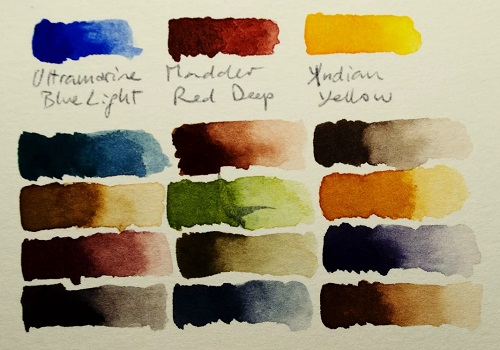 Ultramarine
Blue Light
Madder
Red Deep
Indian
Yellow